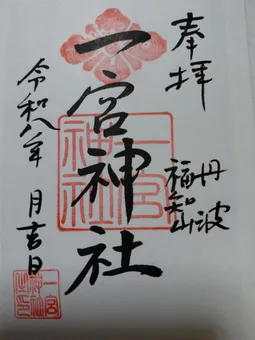 奉拝
丹波
福知山
一宮神社
令和八年 月吉日
一宮
神社
一宮
神社
之印